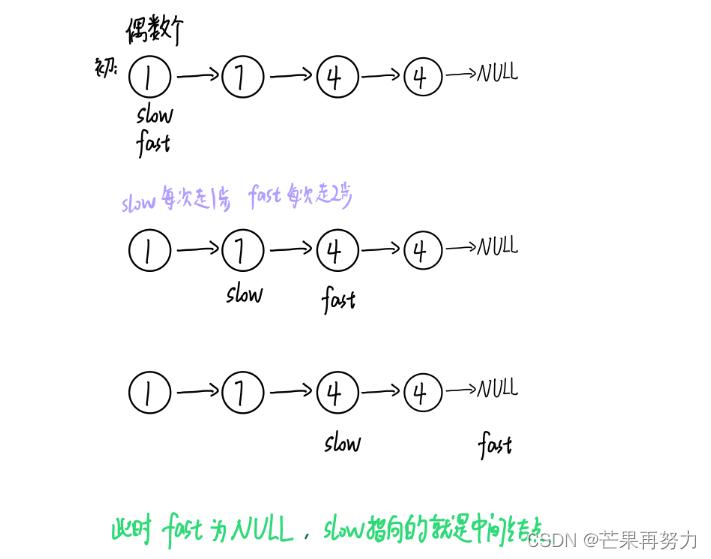 偶数个
初: 1 → 7 → 4 → 4 → NULL
slow
fast
slow 每次走1步 fast 每次走2步
1 → 7 → 4 → 4 → NULL
slow fast
1 → 7 → 4 → 4 → NULL
slow fast
此时 fast 为 NULL，slow指向的就是中间结点
CSDN @芒果再努力